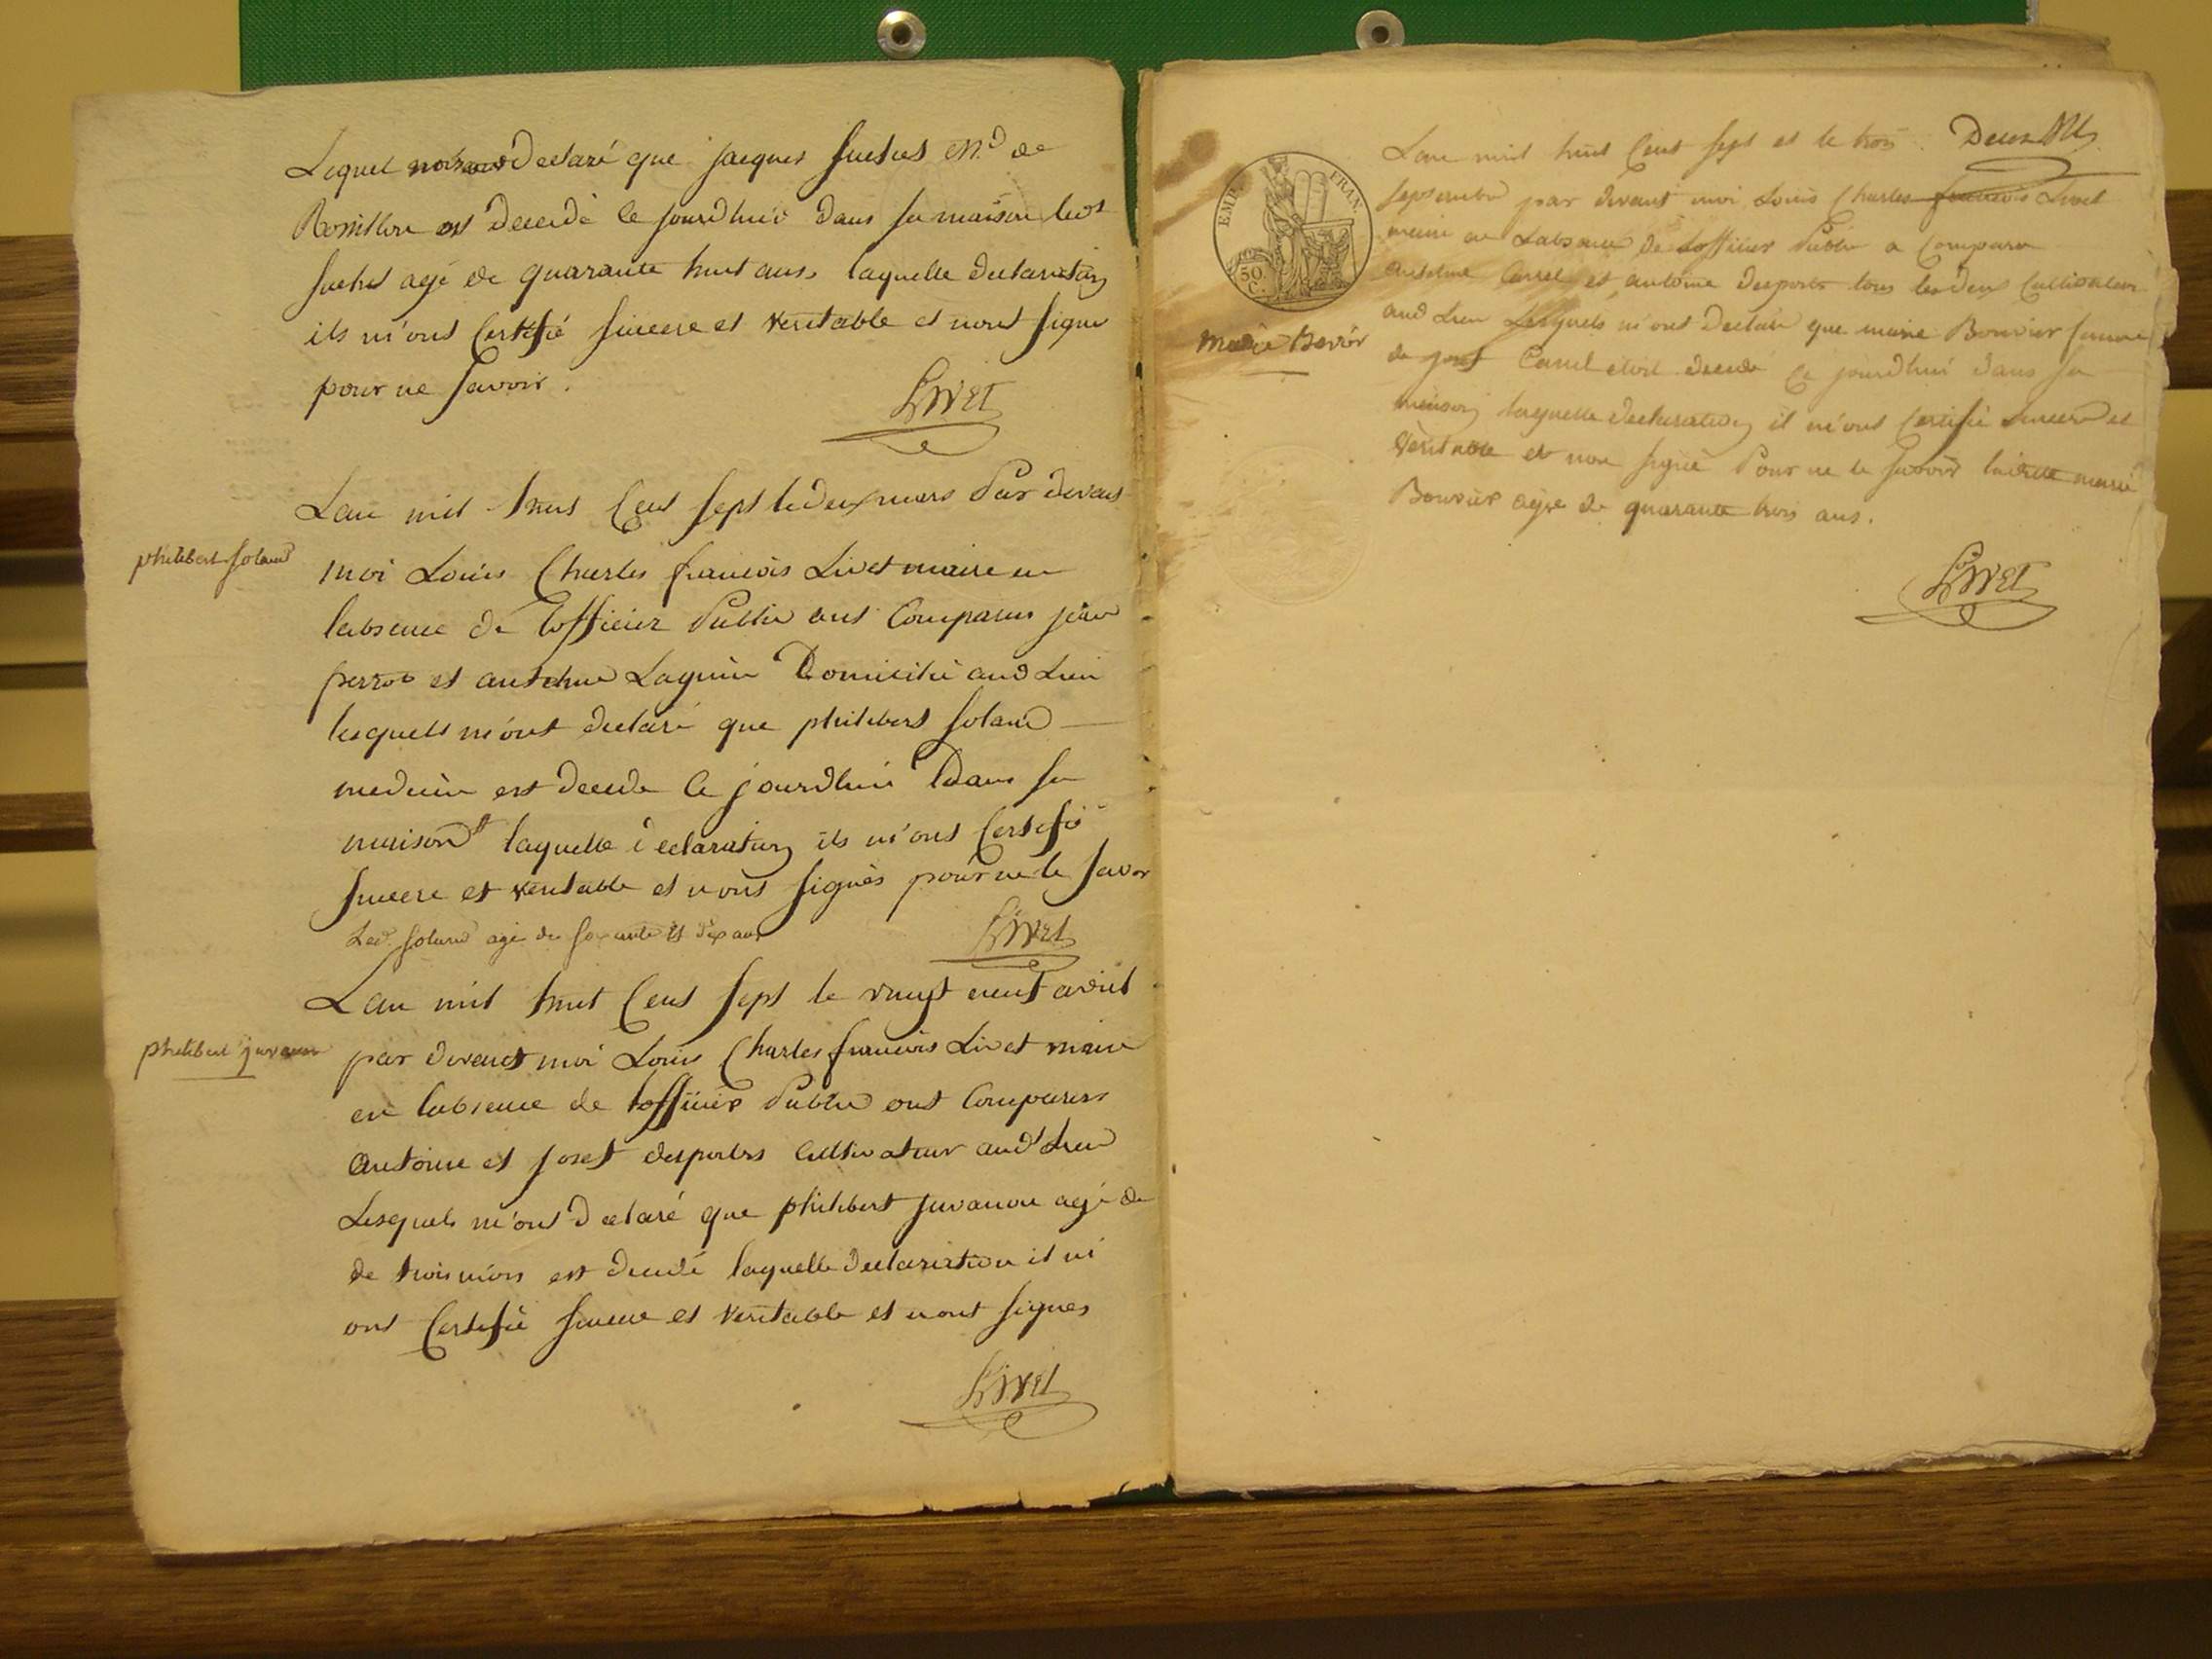 Lequel Declaré que jacques suchet M.d de
Rossillon est Decedé le jourdhui dans sa maison led.t
suchet agé de quarante huit ans laquelle declaration
ils m'ont Certifié sincere et veritable et nont signe
pour ne savoir.
Livet
Lan mil huit Cent sept le deux mars Par devant
philibert
moi Louis Charles francois Livet maire en
labsence de lofficier Public ont Comparus jean
perrot et anthelme Domicilié aud Lieu
lesquels m'ont declaré que philibert
medecin est decede le jourdhui Dans sa
maison laquelle declaration ils m'ont Certifié
sincere et veritable et nont signés pour ne le savoir
Led. agé de soixante et dix ans
Livet
Lan mil huit Cent sept le vingt neuf avril
philibert juvanon
par devant moi Louis Charles francois Livet maire
en labsence de lofficier Public ont Comparus
Antoine et josef desportes Cultivateur aud Lieu
Lesquels m'ont declaré que philibert juvanon agé de
de trois mois est decedé laquelle declaration il m
ont Certifié sincere et veritable et nont signes
Livet
EMP. FRAN.
50. C.
Lan mil huit Cent sept et le trois
septembre par devant moi Louis Charles francois Livet
maire en Labsence de Lofficier Public a Comparu
anthelme Carrel et antoine Desportes tous les deux Cultivateur
aud Lieu Lesquels m'ont Declaré que marie Bouvier femme
de josef Carrel etoit decedé ce jourdhui dans sa
maison laquelle declaration il m'ont Certifié sincere et
veritable et non signé Pour ne le savoir ladite marie
Bouvier agée de quarante trois ans.
Livet